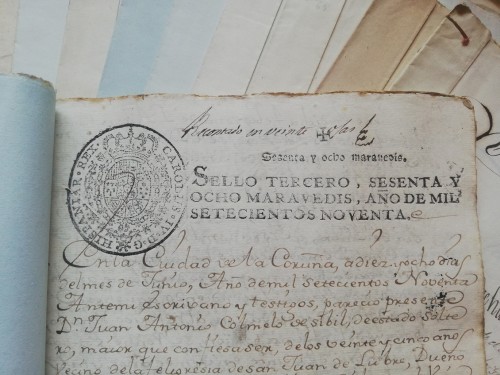 CAROLUS IV D G HISPANIAR REX
en veinte
Sesenta y ocho maravedis.
SELLO TERCERO, SESENTA Y
OCHO MARAVEDIS, AÑO DE MIL
SETECIENTOS NOVENTA.
En la Ciudad de la Coruña, a diez y ocho dias
del mes de Junio, Año de mil setecientos Noventa
Antemi escrivano y testigos, parecio presente
Dn. Juan Antonio de estado solte
ro, maior que confesoser, de los veinte y cinco años
Vecino de la feligresia de san Juan de Lubre, Dueño